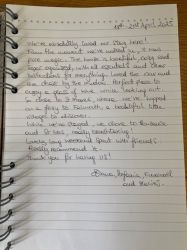 19th - 22nd April, 2025
We've absolutely loved our stay here!
From the moment we've walked in, it was
pure magic. The house is beautiful, cosy and
well equipped, with all essentials and clear
instructions for everything. Loved the view and
the chair by the window. Perfect place to
enjoy a glass of wine while looking out.
So close to St Mawes, where we've hopped
on a ferry to Falmouth, a beautiful little
village to discover.
While we've stayed, we chose to
and it was really breathtaking!
Lovely long weekend spent with friends.
Really recommend it.
Thank you for having us!
and